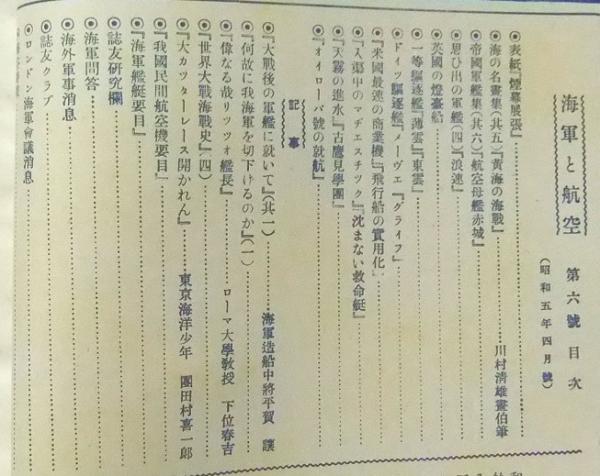 海軍と航空 第六號目次
(昭和五年四月號)
◉表紙『煙幕展張』
◉海の名畫集(其五)『黃海の海戰』 川村清雄畫伯筆
◉帝國軍艦集(其六)『航空母艦赤城』
◉思ひ出の軍艦(四)『浪速』
◉英國の燈臺船
◉一等驅逐艦『薄雲』『東雲』
◉ドイツ驅逐艦『メーヴェ』『グライフ』
◉『米國最速の商業機』『飛行船の實用化』
◉『入渠中のマヂエスチツク』『沈まない救命艇』
◉『天霧の進水』『古鷹見學團』
◉『オイローパ號の就航』
記事
◉『大戰後の軍艦に就いて』(其一) 海軍造船中將平賀 讓
◉『何故に我海軍を切下げるのか』(一)
◉『偉なる哉リッツォ艦長』 ローマ大學教授 下位春吉
◉『世界大戰海戰史』(四)
◉『大カツターレース開かれん』 東京海洋少年團田村喜一郎
◉『我國民間航空機要目』
◉『海軍艦艇要目』
◉誌友研究欄
◉海軍問答
◉海外軍事消息
◉誌友クラブ
◉ロンドン海軍會議消息